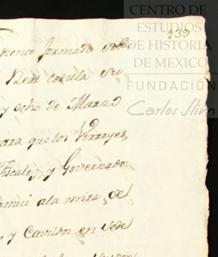 CENTRO DE
ESTUDIOS
DE HISTORIA
DE MEXICO
FUNDACIÓN
Carlos Slim
239
formado sobre
Real cedula de
y ocho de Marzo
para que los Virreyes,
Fiscales, y Governador
a la mira, de
y Cavildos en Sede